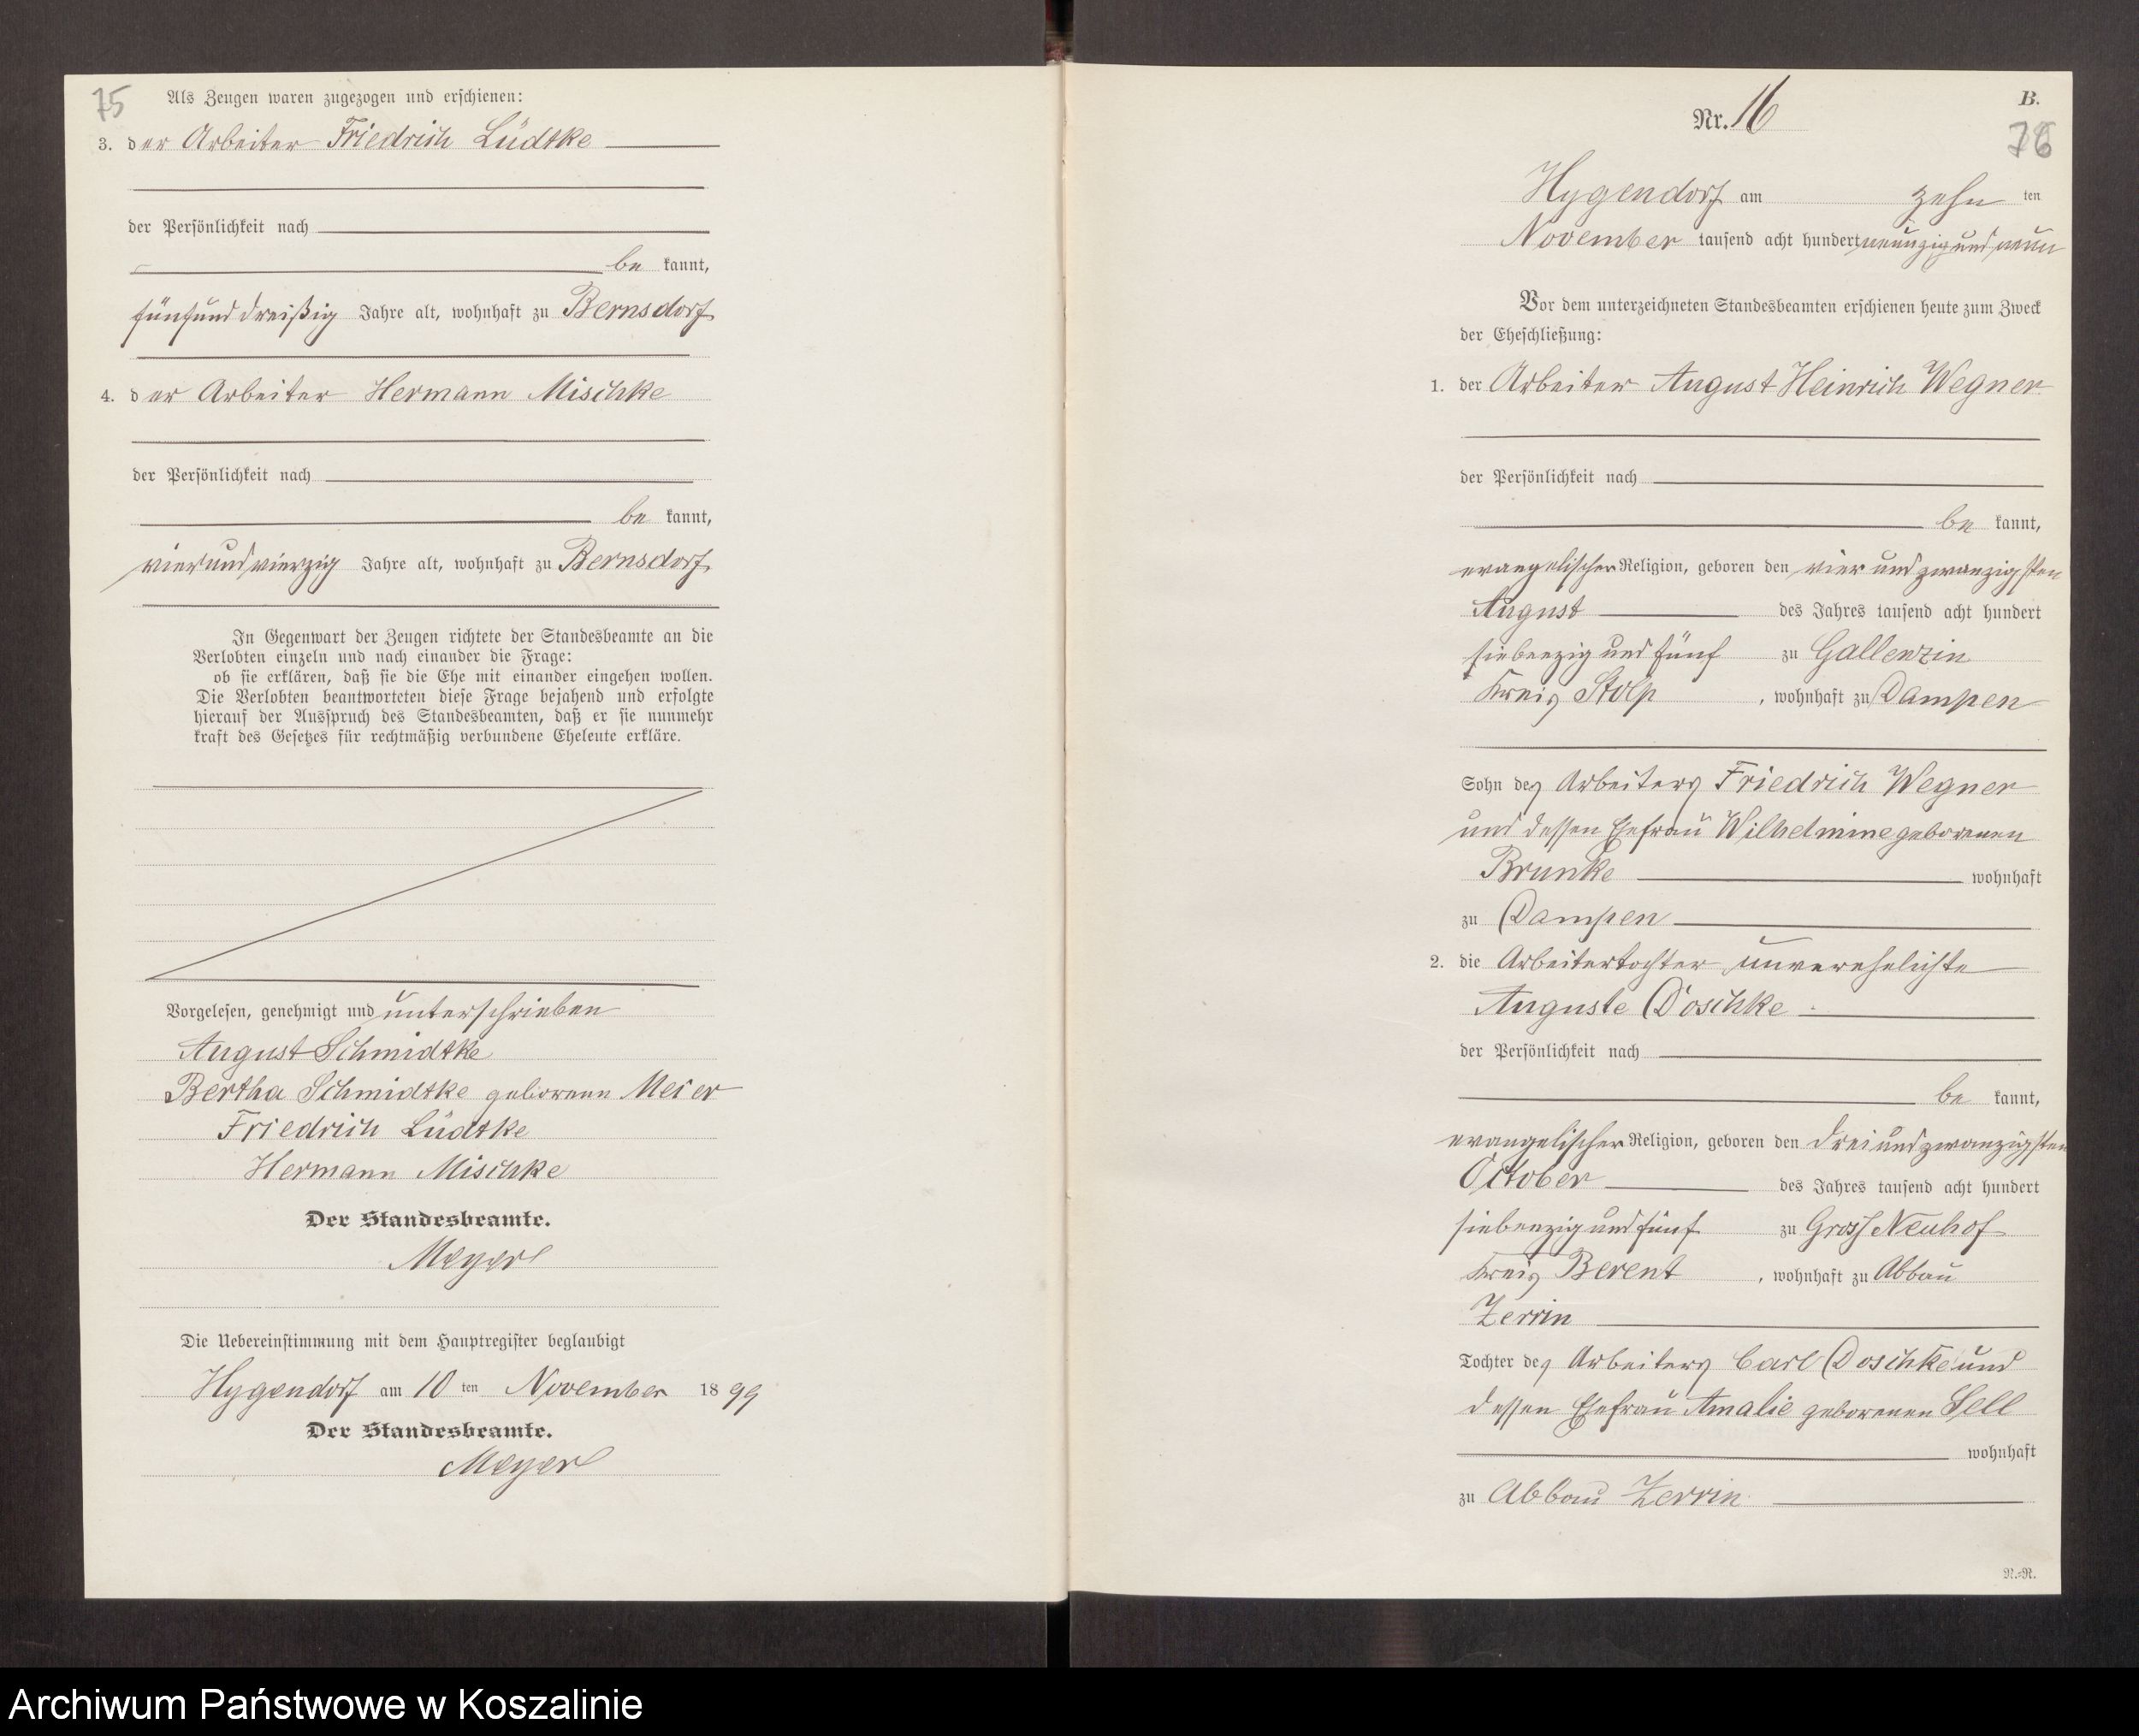 75
Als Zeugen waren zugezogen und erschienen:
3. der Arbeiter Friedrich Lüdtke
der Persönlichkeit nach
be kannt,
fünfunddreißig Jahre alt, wohnhaft zu Bernsdorf
4. der Arbeiter Hermann Mischke
der Persönlichkeit nach
be kannt,
vierundvierzig Jahre alt, wohnhaft zu Bernsdorf,
In Gegenwart der Zeugen richtete der Standesbeamte an die
Verlobten einzeln und nach einander die Frage:
ob sie erklären, daß sie die Ehe mit einander eingehen wollen.
Die Verlobten beantworteten diese Frage bejahend und erfolgte
hierauf der Ausspruch des Standesbeamten, daß er sie nunmehr
kraft des Gesetzes für rechtmäßig verbundene Eheleute erkläre.
Vorgelesen, genehmigt und unterschrieben
August Schmidtke
Bertha Schmidtke geborene Meier
Friedrich Lüdtke
Hermann Mischke
Der Standesbeamte.
Meyer
Die Uebereinstimmung mit dem Hauptregister beglaubigt
Hygendorf am 10 ten November 18 99
Der Standesbeamte.
Meyer
B.
Nr. 16
76
Hygendorf am zehn ten
November tausend acht hundert neunzig und neun
Vor dem unterzeichneten Standesbeamten erschienen heute zum Zweck
der Eheschließung:
1. der Arbeiter August Heinrich Wegner
der Persönlichkeit nach
be kannt,
evangelischer Religion, geboren den vier und zwanzigsten
August des Jahres tausend acht hundert
siebenzig und fünf zu Gallenzin
Kreis Stolp, wohnhaft zu Dampen
Sohn des Arbeiters Friedrich Wegner
und dessen Ehefrau Wilhelmine geborenen
Brunke wohnhaft
zu Dampen
2. die Arbeitertochter unverehelichte
Auguste Doschke
der Persönlichkeit nach
be kannt,
evangelischer Religion, geboren den dreiundzwanzigsten
October des Jahres tausend acht hundert
siebenzig und fünf zu Gross Neuhof
Kreis Berent, wohnhaft zu Abbau
Zerrin
Tochter des Arbeiters Carl Doschke und
dessen Ehefrau Amalie geborenen Sell
wohnhaft
zu Abbau Zerrin
N.=R.
Archiwum Państwowe w Koszalinie